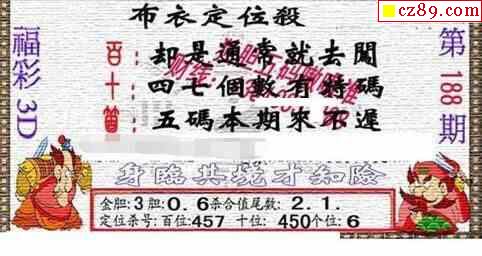 cz89.com
布衣定位殺
福彩3D
第188期
百: 却是通常就去聞
十: 四七個數有特碼
個: 五碼本期來不遲
身臨其境才知險
金胆:3胆:0.6杀合值尾数:2.1.
定位杀号:百位:457 十位:450个位:6